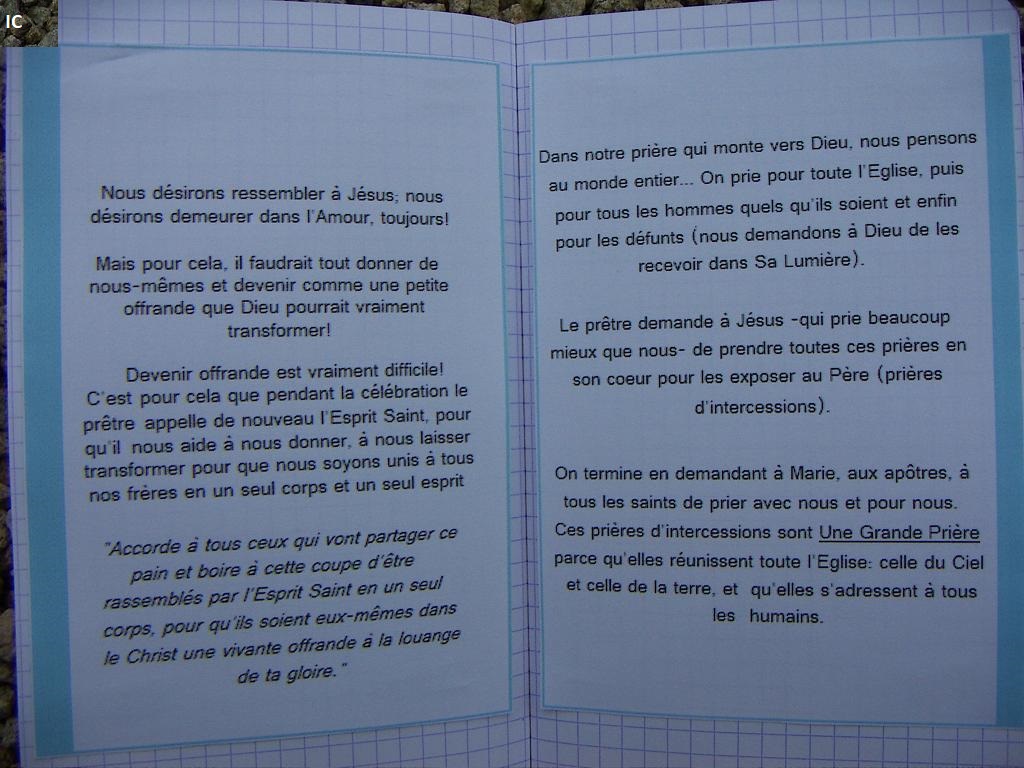 IC
Nous désirons ressembler à Jésus; nous
désirons demeurer dans l'Amour, toujours!
Mais pour cela, il faudrait tout donner de
nous-mêmes et devenir comme une petite
offrande que Dieu pourrait vraiment
transformer!
Devenir offrande est vraiment difficile!
C'est pour cela que pendant la célébration le
prêtre appelle de nouveau l'Esprit Saint, pour
qu'il nous aide à nous donner, à nous laisser
transformer pour que nous soyons unis à tous
nos frères en un seul corps et un seul esprit
"Accorde à tous ceux qui vont partager ce
pain et boire à cette coupe d'être
rassemblés par l'Esprit Saint en un seul
corps, pour qu'ils soient eux-mêmes dans
le Christ une vivante offrande à la louange
de ta gloire."
Dans notre prière qui monte vers Dieu, nous pensons
au monde entier... On prie pour toute l'Eglise, puis
pour tous les hommes quels qu'ils soient et enfin
pour les défunts (nous demandons à Dieu de les
recevoir dans Sa Lumière).
Le prêtre demande à Jésus -qui prie beaucoup
mieux que nous- de prendre toutes ces prières en
son coeur pour les exposer au Père (prières
d'intercessions).
On termine en demandant à Marie, aux apôtres, à
tous les saints de prier avec nous et pour nous.
Ces prières d'intercessions sont Une Grande Prière
parce qu'elles réunissent toute l'Eglise: celle du Ciel
et celle de la terre, et qu'elles s'adressent à tous
les humains.